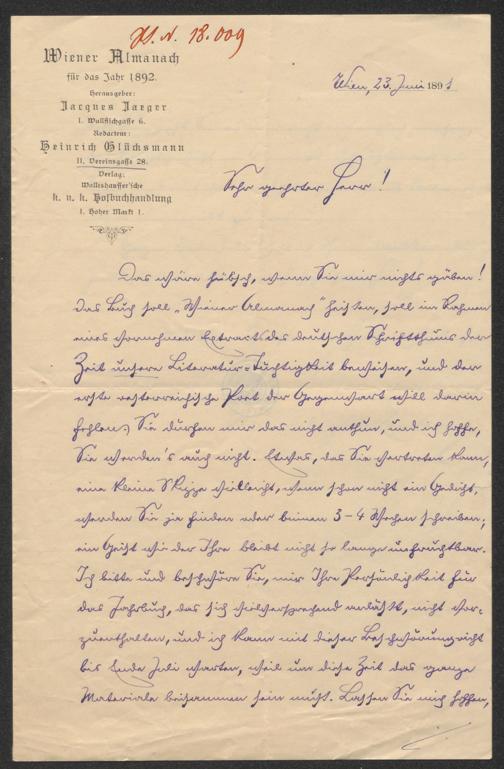 H. N. 18.009
Wiener Almanach
für das Jahr 1892.
Herausgeber:
Jacques Jaeger
I. Wullistichgasse 6.
Redacteur:
Heinrich Glücksmann
II. Vereinsgasse 28.
Verlag:
k. u. k. Hofbuchhandlung
I. Hoher Markt 1.
Wien, 23. Juni 1891
Sehr geehrter Herr!
Das wäre hübsch, wenn Sie mir nichts gäben!
Das Buch soll „Wiener Almanach" heißen, soll im Rahmen
eines vornehmen Extracts des deutschen Schriftthums der
Zeit unsere Literatur-Tüchtigkeit beweisen, und der
erste oesterreichische Poet der Gegenwart will darin
fehlen? Sie dürfen mir das nicht anthun, und ich hoffe,
Sie werden's auch nicht. Etwas, das Sie vertreten kann,
eine kleine Skizze vielleicht, wenn schon nicht ein Gedicht,
werden Sie ja finden oder binnen 3-4 Wochen schreiben;
ein Geist wie der Ihre bleibt nicht so lange unfruchtbar.
Ich bitte und beschwöre Sie, mir Ihre Persönlichkeit für
das Jahrbuch, das sich vielversprechend anläßt, nicht vor-
zuenthalten, und ich kann mit dieser Beschwörung nicht
bis Ende Juli warten, weil um diese Zeit das ganze
Materiale beisammen sein muß. Lassen Sie mich hoffen,